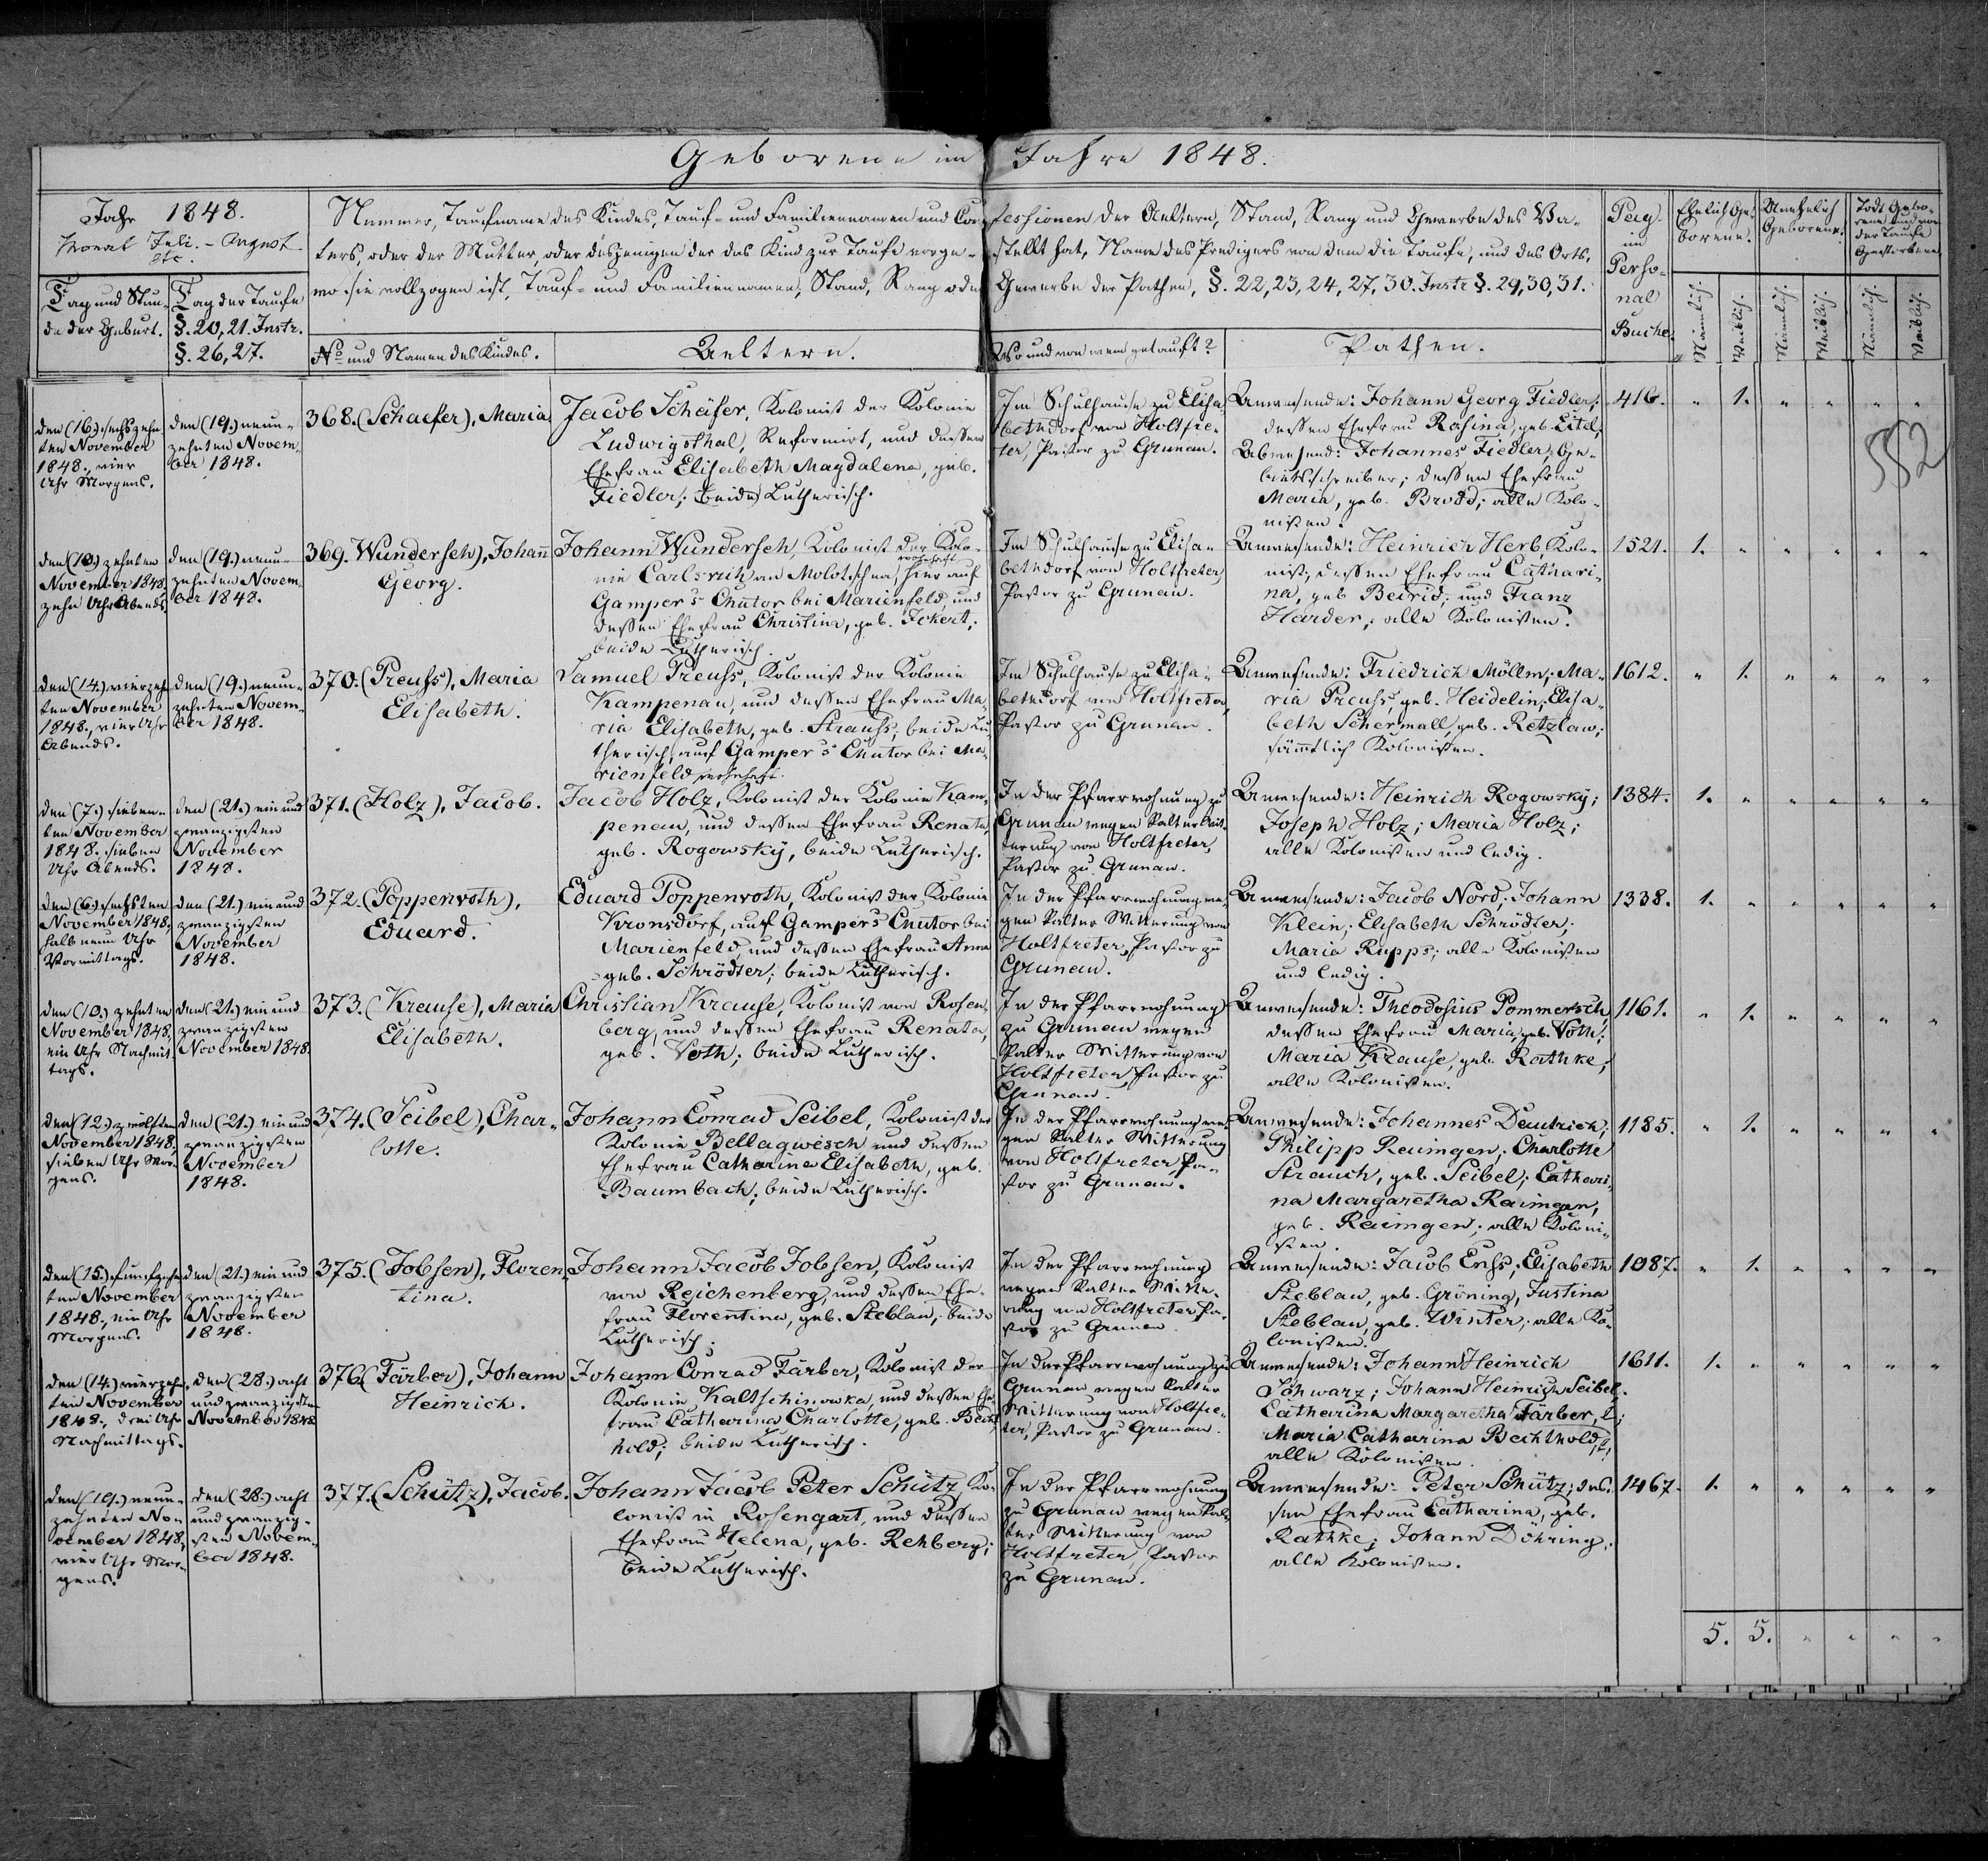 Geborene im Jahre 1848.
Jahr 1848.
Monat Juli. - August
etc.
Tag und Stun-
de der Geburt.
Tag der Taufe
§. 20, 21. Instr.
§. 26, 27.
Nummer, Taufname des Kindes, Tauf- und Familiennamen und Con-fessionen der Aeltern, Stand, Rang und Gewerbe des Va-
ters, oder der Mutter, oder desjenigen der das Kind zur Taufe vorge-stellt hat, Name des Predigers von dem die Taufe, und des Orts,
wo sie vollzogen ist, Tauf- und Familiennamen, Stand, Rang oder Gewerbe der Pathen, §. 22, 23, 24, 27, 30. Instr §. 29, 30, 31.
No und Namen des Kindes.
Aeltern.
Wo und von wem getauft?
Pathen.
Pag.
im
Perso-
nal
Buche.
Ehelich Ge-
borene.
Unehelich
Geborene.
Todt Gebo-
rene und vor
der Taufe
Gestorbene
Männlich.
Weiblich.
Männlich.
Weiblich.
Männlich.
Weiblich.
den (16.) sechszehn-
ten November
1848., vier
Uhr Morgens.
den (19.) neun-
zehnten Novem-
ber 1848.
368. (Schaefer), Maria
Jacob Schäfer, Kolonist der Kolonie
Ludwigsthal, Reformirt, und dessen
Ehefrau Elisabeth Magdalena, geb.
Fiedler; beide Lutherisch.
Im Schulhause zu Elisa-
bethdorf von Holtfre-
ter, Pastor zu Grunau.
Anwesende: Johann Georg Fiedler;
dessen Ehefrau Rosina, geb. Litel;
Abwesend: Johannes Fiedler, Ge-
bietsschreiber; dessen Ehefrau
Maria, geb. Brodd; alle Kolo-
nisten.
416. " 1. " " " "
552
den (10.) zehnten
November 1848,
zehn Uhr Abends.
den (19.) neun-
zehnten Novem-
ber 1848.
369. Wundersch), Johann
Georg.
Johann Wundersch, Kolonist der Kolo-
wohnhaft
nie Carlsruh an Molotschna, hier auf
Gamper's Chutor bei Marienfeld, und
dessen Ehefrau Christina, geb. Ickert;
beide Lutherisch.
Im Schulhause zu Elisa-
bethdorf von Holtfreter,
Pastor zu Grunau.
Anwesende: Heinrich Herb, Kolo-
nist, dessen Ehefrau Cathari-
na, geb. Beirid; und Franz
Harder; alle Kolonisten.
1521. 1. " " " " "
den (14.) vierzehn-
ten November
1848., vier Uhr
Abends.
den (19.) neun-
zehnten Novem-
ber 1848.
370. (Preuss), Maria
Elisabeth.
Samuel Preuss, Kolonist der Kolonie
Kampenau, und dessen Ehefrau Ma-
ria Elisabeth, geb. Strauss; beide Lu-
therisch; auf Gamper's Chutor bei Ma-
rienfeld wohnhaft.
Im Schulhause zu Elisa-
bethdorf von Holtfreter,
Pastor zu Grunau.
Anwesende: Friedrich Möllm; Ma-
ria Preuss, geb. Heidelin; Elisa-
beth Schermall, geb. Retzlaw;
sämmtlich Kolonisten.
1612. " 1. " " " "
den (7.) sieben-
ten November
1848. sieben
Uhr Abends.
den (21.) ein und
zwanzigsten
November
1848.
371. (Holz), Jacob.
Jacob Holz, Kolonist der Kolonie Kam-
penau, und dessen Ehefrau Renata,
geb. Rogowsky, beide Lutherisch.
In der Pfarrwohnung zu
Grunau wegen kalter Wit-
terung von Holtfreter,
Pastor zu Grunau.
Anwesende: Heinrich Rogowsky;
Joseph Holz; Maria Holz;
alle Kolonisten und ledig.
1384. 1. " " " " "
den (6.) sechsten
November 1848,
halb neun Uhr
Vormittags.
den (21.) ein und
zwanzigsten
November
1848.
372. (Poppenroth),
Eduard.
Eduard Poppenroth, Kolonist der Kolonie
Kronsdorf, auf Gamper's Chutor bei
Marienfeld, und dessen Ehefrau Anna
geb. Schrödter; beide Lutherisch.
In der Pfarrwohnung we-
gen kalter Witterung von
Holtfreter, Pastor zu
Grunau.
Anwesende: Jacob Nord; Johann
Klein; Elisabeth Schrödter;
Maria Rupps; alle Kolonisten
und ledig.
1338. 1. " " " " "
den (10.) zehnten
November 1848,
ein Uhr Nachmit-
tags.
den (21.) ein und
zwanzigsten
November 1848.
373. (Krause), Maria
Elisabeth.
Christian Krause, Kolonist von Rosen-
berg, und dessen Ehefrau Renata,
geb. Voth; beide Lutherisch.
In der Pfarrwohnung
zu Grunau wegen
kalter Witterung von
Holtfreter, Pastor zu
Grunau.
Anwesende: Theodosius Pommersch
dessen Ehefrau Maria, geb. Voth;
Maria Krause, geb. Rathke;
alle Kolonisten.
1161. " 1. " " " "
den (12.) zwölften
November 1848,
sieben Uhr Mor-
gens.
den (21.) ein und
zwanzigsten
November
1848.
374. (Seibel), Char-
lotte.
Johann Conrad Seibel, Kolonist der
Kolonie Bellagwesch, und dessen
Ehefrau Catharina Elisabeth, geb.
Baumbach; beide Lutherisch.
In der Pfarrwohnung we-
gen kalter Witterung
von Holtfreter, Pa-
stor zu Grunau.
Anwesende: Johannes Deutrich;
Philipp Reumgen; Charlotte
Strauch, geb. Seibel; Cathari-
na Margaretha Raimgen,
geb. Raimgen; alle Koloni-
sten.
1185. " 1. " " " "
den (15.) funfzehn-
ten November
1848., ein Uhr
Morgens.
den (21.) ein und
zwanzigsten
November
1848.
375. (Jobsen), Floren-
tina.
Johann Jacob Jobsen, Kolonist
von Reichenberg, und dessen Ehe-
frau Florentina, geb. Steblau; beide
Lutherisch.
In der Pfarrwohnung
wegen kalter Witte-
rung von Holtfreter, Pa-
stor zu Grunau.
Anwesende: Jacob Enss; Elisabeth
Steblau, geb. Gröning, Justina
Steblau, geb. Winter; alle Ko-
lonisten.
1087. " 1. " " " "
den (14.) vierzehn-
ten November
1848., drei Uhr
Nachmittags.
den (28.) acht
und zwanzigsten
November 1848
376. (Färber), Johann
Heinrich.
Johann Conrad Färber, Kolonist der
Kolonie Kaltschinowka, und dessen Ehe-
frau Catharina Charlotte, geb. Becht-
hold; beide Lutherisch.
In der Pfarrwohnung zu
Grunau wegen kalter
Witterung von Holtfre-
ter, Pastor zu Grunau.
Anwesende: Johann Heinrich
Schwarz; Johann Heinrich Seibel.
Catharina Margaretha Färber, l;
Maria Catharina Bechthold, l,
alle Kolonisten.
1611. 1. " " " " "
den (19.) neun-
zehnten No-
vember 1848,
vier Uhr Mor-
gens.
den (28.) acht
und zwanzig-
sten Novem-
ber 1848.
377. (Schütz), Jacob.
Johann Jacob Peter Schütz, Ko-
lonist in Rosengart, und dessen
Ehefrau Helena, geb. Rehberg;
beide Lutherisch.
In der Pfarrwohnung
zu Grunau wegen kal-
ter Witterung von
Holtfreter, Pastor
zu Grunau.
Anwesende: Peter Schütz; des-
sen Ehefrau Catharina, geb.
Rathke; Johann Döhring;
alle Kolonisten.
1467. 1. " " " " "
5. 5. " " " "